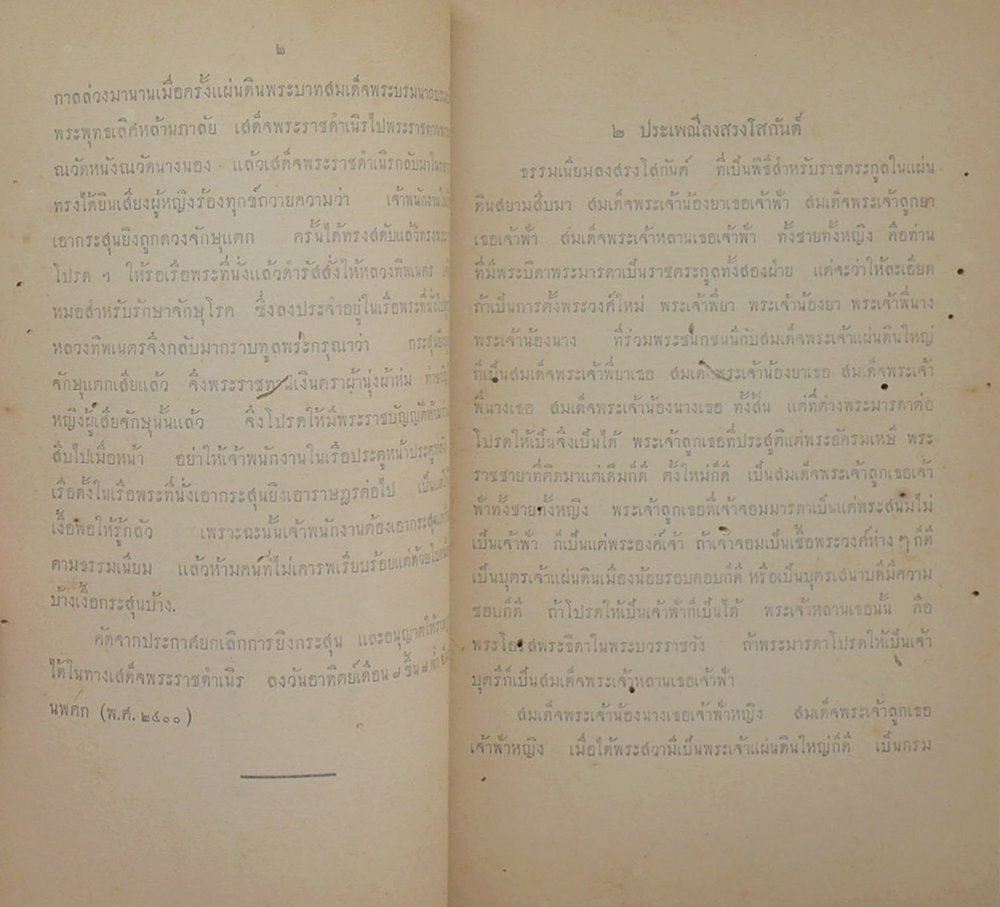 ๒
กาลล่วงมานานเมื่อครั้งแผ่นดินพระบาทสมเด็จพระบรมนาถบรม
พระพุทธเลิศหล้านภาลัย เสด็จพระราชดำเนิรไปพระราชทาน
ณวัดหนังณวัดนางนอง แล้วเสด็จพระราชดำเนิรกลับมาใน
ทรงได้ยินเสียงผู้หญิงร้องทุกข์ถวายความว่า เจ้าพนักงาน
เอากระสุนยิงถูกดวงจักษุแตก ครั้นได้ทรงสดับแล้วทรงพระ
โปรด ๆ ให้รอเรือพระที่นั่งแล้วดำรัสสั่งให้หลวงทิพเนตร
หมอสำหรับรักษาจักษุโรค ซึ่งลงประจำอยู่ในเรือพระที่นั่ง
หลวงทิพเนตรจึงกลับมากราบทูลพระกรุณาว่า กระสุน
จักษุแตกเสียแล้ว จึงพระราชทานเงินตราผ้านุ่งผ้าห่ม ทำขวัญ
หญิงผู้เสียจักษุนั้นแล้ว จึงโปรดให้มีพระราชบัญญัติห้าม
สืบไปเมื่อหน้า อย่าให้เจ้าพนักงานในเรือประตูหน้าประตูหลัง
เรือดั้งในเรือพระที่นั่งเอากระสุนยิงเอาราษฎรต่อไป เป็นแต่
เงื้อพอให้รู้กลัว เพราะฉะนั้นเจ้าพนักงานต้องเอากระสุน
ตามธรรมเนียม แล้วห้ามคนที่ไม่เคารพเรียบร้อยแต่ด้วยโบก
บ้างเงื้อกระสุนบ้าง.
คัดจากประกาศยกเลิกการยิงกระสุน และอนุญาตให้ราษฎร
ได้ในทางเสด็จพระราชดำเนิร ลงวันอาทิตย์เดือน ๘ ขึ้น ๘ ค่ำ
นพศก (พ.ศ. ๒๔๐๐)
๒ ประเพณีลงสรงโสกันต์
ธรรมเนียมลงสรงโสกันต์ ที่เป็นพิธีสำหรับราชตระกูลในแผ่น
ดินสยามสืบมา สมเด็จพระเจ้าน้องยาเธอเจ้าฟ้า สมเด็จพระเจ้าลูกยา
เธอเจ้าฟ้า สมเด็จพระเจ้าหลานเธอเจ้าฟ้า ทั้งชายทั้งหญิง คือท่าน
ที่มีพระบิดาพระมารดาเป็นราชตระกูลทั้งสองฝ่าย แต่จะว่าให้ละเอียด
ถ้าเป็นการตั้งพระวงศ์ใหม่ พระเจ้าพี่ยา พระเจ้าน้องยา พระเจ้าพี่นาง
พระเจ้าน้องนาง ที่ร่วมพระชนกชนนีกับสมเด็จพระเจ้าแผ่นดินใหญ่
ก็เป็นสมเด็จพระเจ้าพี่ยาเธอ สมเด็จพระเจ้าน้องยาเธอ สมเด็จพระเจ้า
พี่นางเธอ สมเด็จพระเจ้าน้องนางเธอ ทั้งสิ้น แต่ที่ต่างพระมารดาต่อ
โปรดให้เป็นจึงเป็นได้ พระเจ้าลูกเธอที่ประสูติแต่พระอัครมเหษี พระ
ราชชายาที่ติดมาแต่เดิมก็ดี ตั้งใหม่ก็ดี เป็นสมเด็จพระเจ้าลูกเธอเจ้า
ฟ้าทั้งชายทั้งหญิง พระเจ้าลูกเธอที่เจ้าจอมมารดาเป็นแต่พระสนมไม่
เป็นเจ้าฟ้า ก็เป็นแต่พระองค์เจ้า ถ้าเจ้าจอมเป็นเชื้อพระวงศ์ห่าง ๆ ก็ดี
เป็นบุตรเจ้าแผ่นดินเมืองน้อยรอบคอบก็ดี หรือเป็นบุตรเสนาบดีมีความ
ชอบก็ดี ถ้าโปรดให้เป็นเจ้าฟ้าก็เป็นได้ พระเจ้าหลานเธอนั้น คือ
พระโอรสพระธิดาในพระบวรราชวัง ถ้าพระมารดาโปรดให้เป็นเจ้า
บุตรีก็เป็นสมเด็จพระเจ้าหลานเธอเจ้าฟ้า
สมเด็จพระเจ้าน้องนางเธอเจ้าฟ้าหญิง สมเด็จพระเจ้าลูกเธอ
เจ้าฟ้าหญิง เมื่อได้พระสวามีเป็นพระเจ้าแผ่นดินใหญ่ก็ดี เป็นกรม